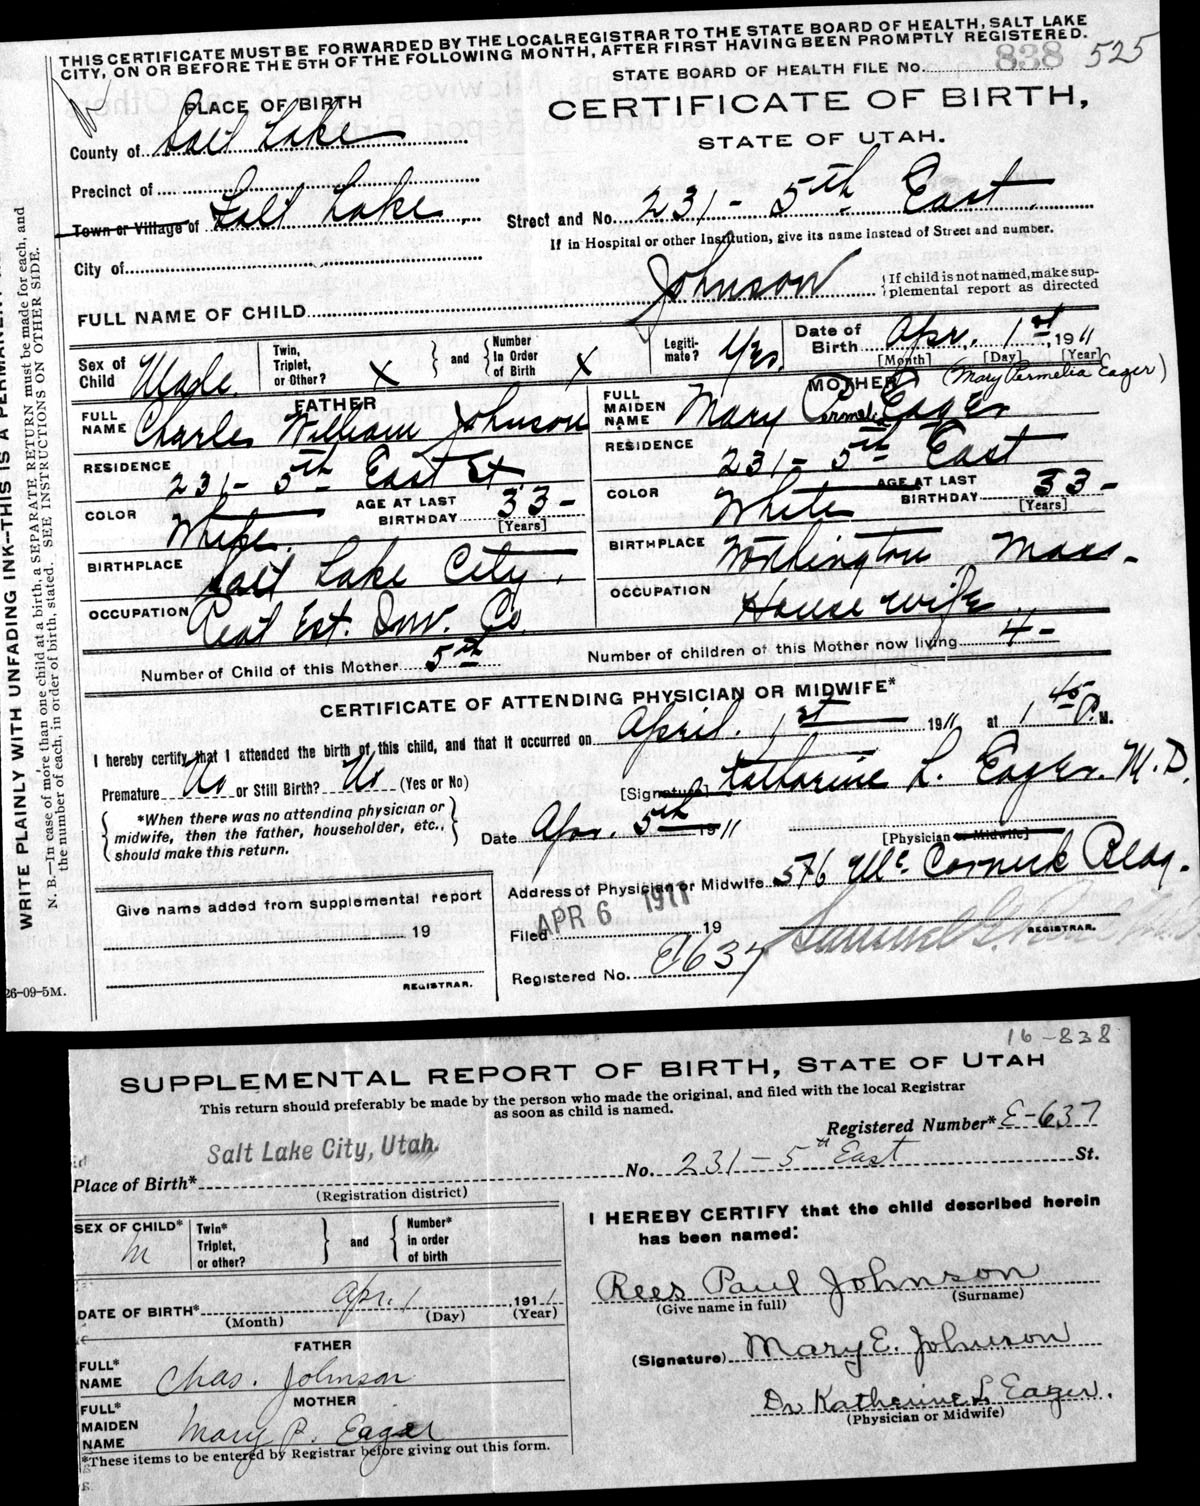 THIS CERTIFICATE MUST BE FORWARDED BY THE LOCAL REGISTRAR TO THE STATE BOARD OF HEALTH, SALT LAKE
CITY, ON OR BEFORE THE 5TH OF THE FOLLOWING MONTH, AFTER FIRST HAVING BEEN PROMPTLY REGISTERED.
STATE BOARD OF HEALTH FILE No. 838 525
PLACE OF BIRTH
CERTIFICATE OF BIRTH,
STATE OF UTAH.
County of Salt Lake
Precinct of
Town or Village of Salt Lake
Street and No. 231 - 5th East
If in Hospital or other Institution, give its name instead of Street and number.
City of
FULL NAME OF CHILD Johnson
{If child is not named, make sup-
plemental report as directed
Sex of Child Male
Twin, Triplet, or Other? X
and
Number In Order of Birth X
Legiti-mate? Yes.
Date of Birth Apr. 1st, 1911
[Month] [Day] [Year]
FATHER
MOTHER (Mary Permelia Eager)
FULL NAME Charles William Johnson
FULL MAIDEN NAME Mary Permeli Eager
RESIDENCE 231 - 5th East St.
RESIDENCE 231 - 5th East
COLOR White.
AGE AT LAST BIRTHDAY 33 -
[Years]
COLOR White
AGE AT LAST BIRTHDAY 33 -
[Years]
BIRTHPLACE Salt Lake City.
BIRTHPLACE Worthington Mass.
OCCUPATION Real Est. Inv. Co.
OCCUPATION House wife
Number of Child of this Mother 5th
Number of children of this Mother now living 4 -
CERTIFICATE OF ATTENDING PHYSICIAN OR MIDWIFE*
I hereby certify that I attended the birth of this child, and that it occurred on April. 1st 1911 at 1 45 P. M.
Premature No or Still Birth? No (Yes or No)
[Signature] Katharine L. Eager. M.D.
*When there was no attending physician or
midwife, then the father, householder, etc.,
should make this return.
Date Apr. 5th 1911
[Physician or Midwife]
Address of Physician or Midwife 576 Mc Cornick Bldg.
Give name added from supplemental report
19
REGISTRAR.
Filed APR 6 1911 19
REGISTRAR.
Registered No. E637
26-09-5M.
WRITE PLAINLY WITH UNFADING INK--THIS IS A PERMANENT
N. B.—In case of more than one child at a birth, a SEPARATE RETURN must be made for each, and
the number of each, in order of birth, stated. SEE INSTRUCTIONS ON OTHER SIDE.
16-838
SUPPLEMENTAL REPORT OF BIRTH, STATE OF UTAH
This return should preferably be made by the person who made the original, and filed with the local Registrar
as soon as child is named.
Registered Number* E-637
Salt Lake City, Utah.
Place of Birth*
(Registration district)
No. 231 - 5th East St.
SEX OF CHILD* M
Twin* Triplet, or other?
and
Number* in order of birth
DATE OF BIRTH* Apr. 1 1911
(Month) (Day) (Year)
FATHER
FULL* NAME Chas. Johnson
MOTHER
FULL* MAIDEN NAME Mary P. Eager
*These items to be entered by Registrar before giving out this form.
I HEREBY CERTIFY that the child described herein
has been named:
Rees Paul Johnson
(Give name in full) (Surname)
(Signature) Mary E. Johnson
Dr Katherine L Eager.
(Physician or Midwife)